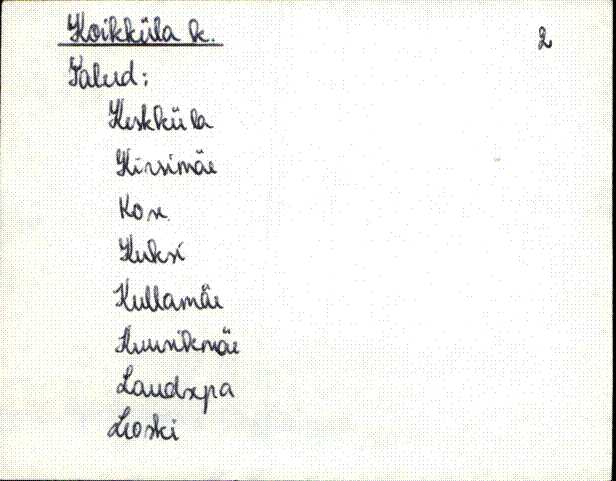 Koikküla k. 2
Talud:
Keskküla
Kirsimäe
Kose
Kuksi
Kullamäe
Kuusikmäe
Laudsepa
Looski